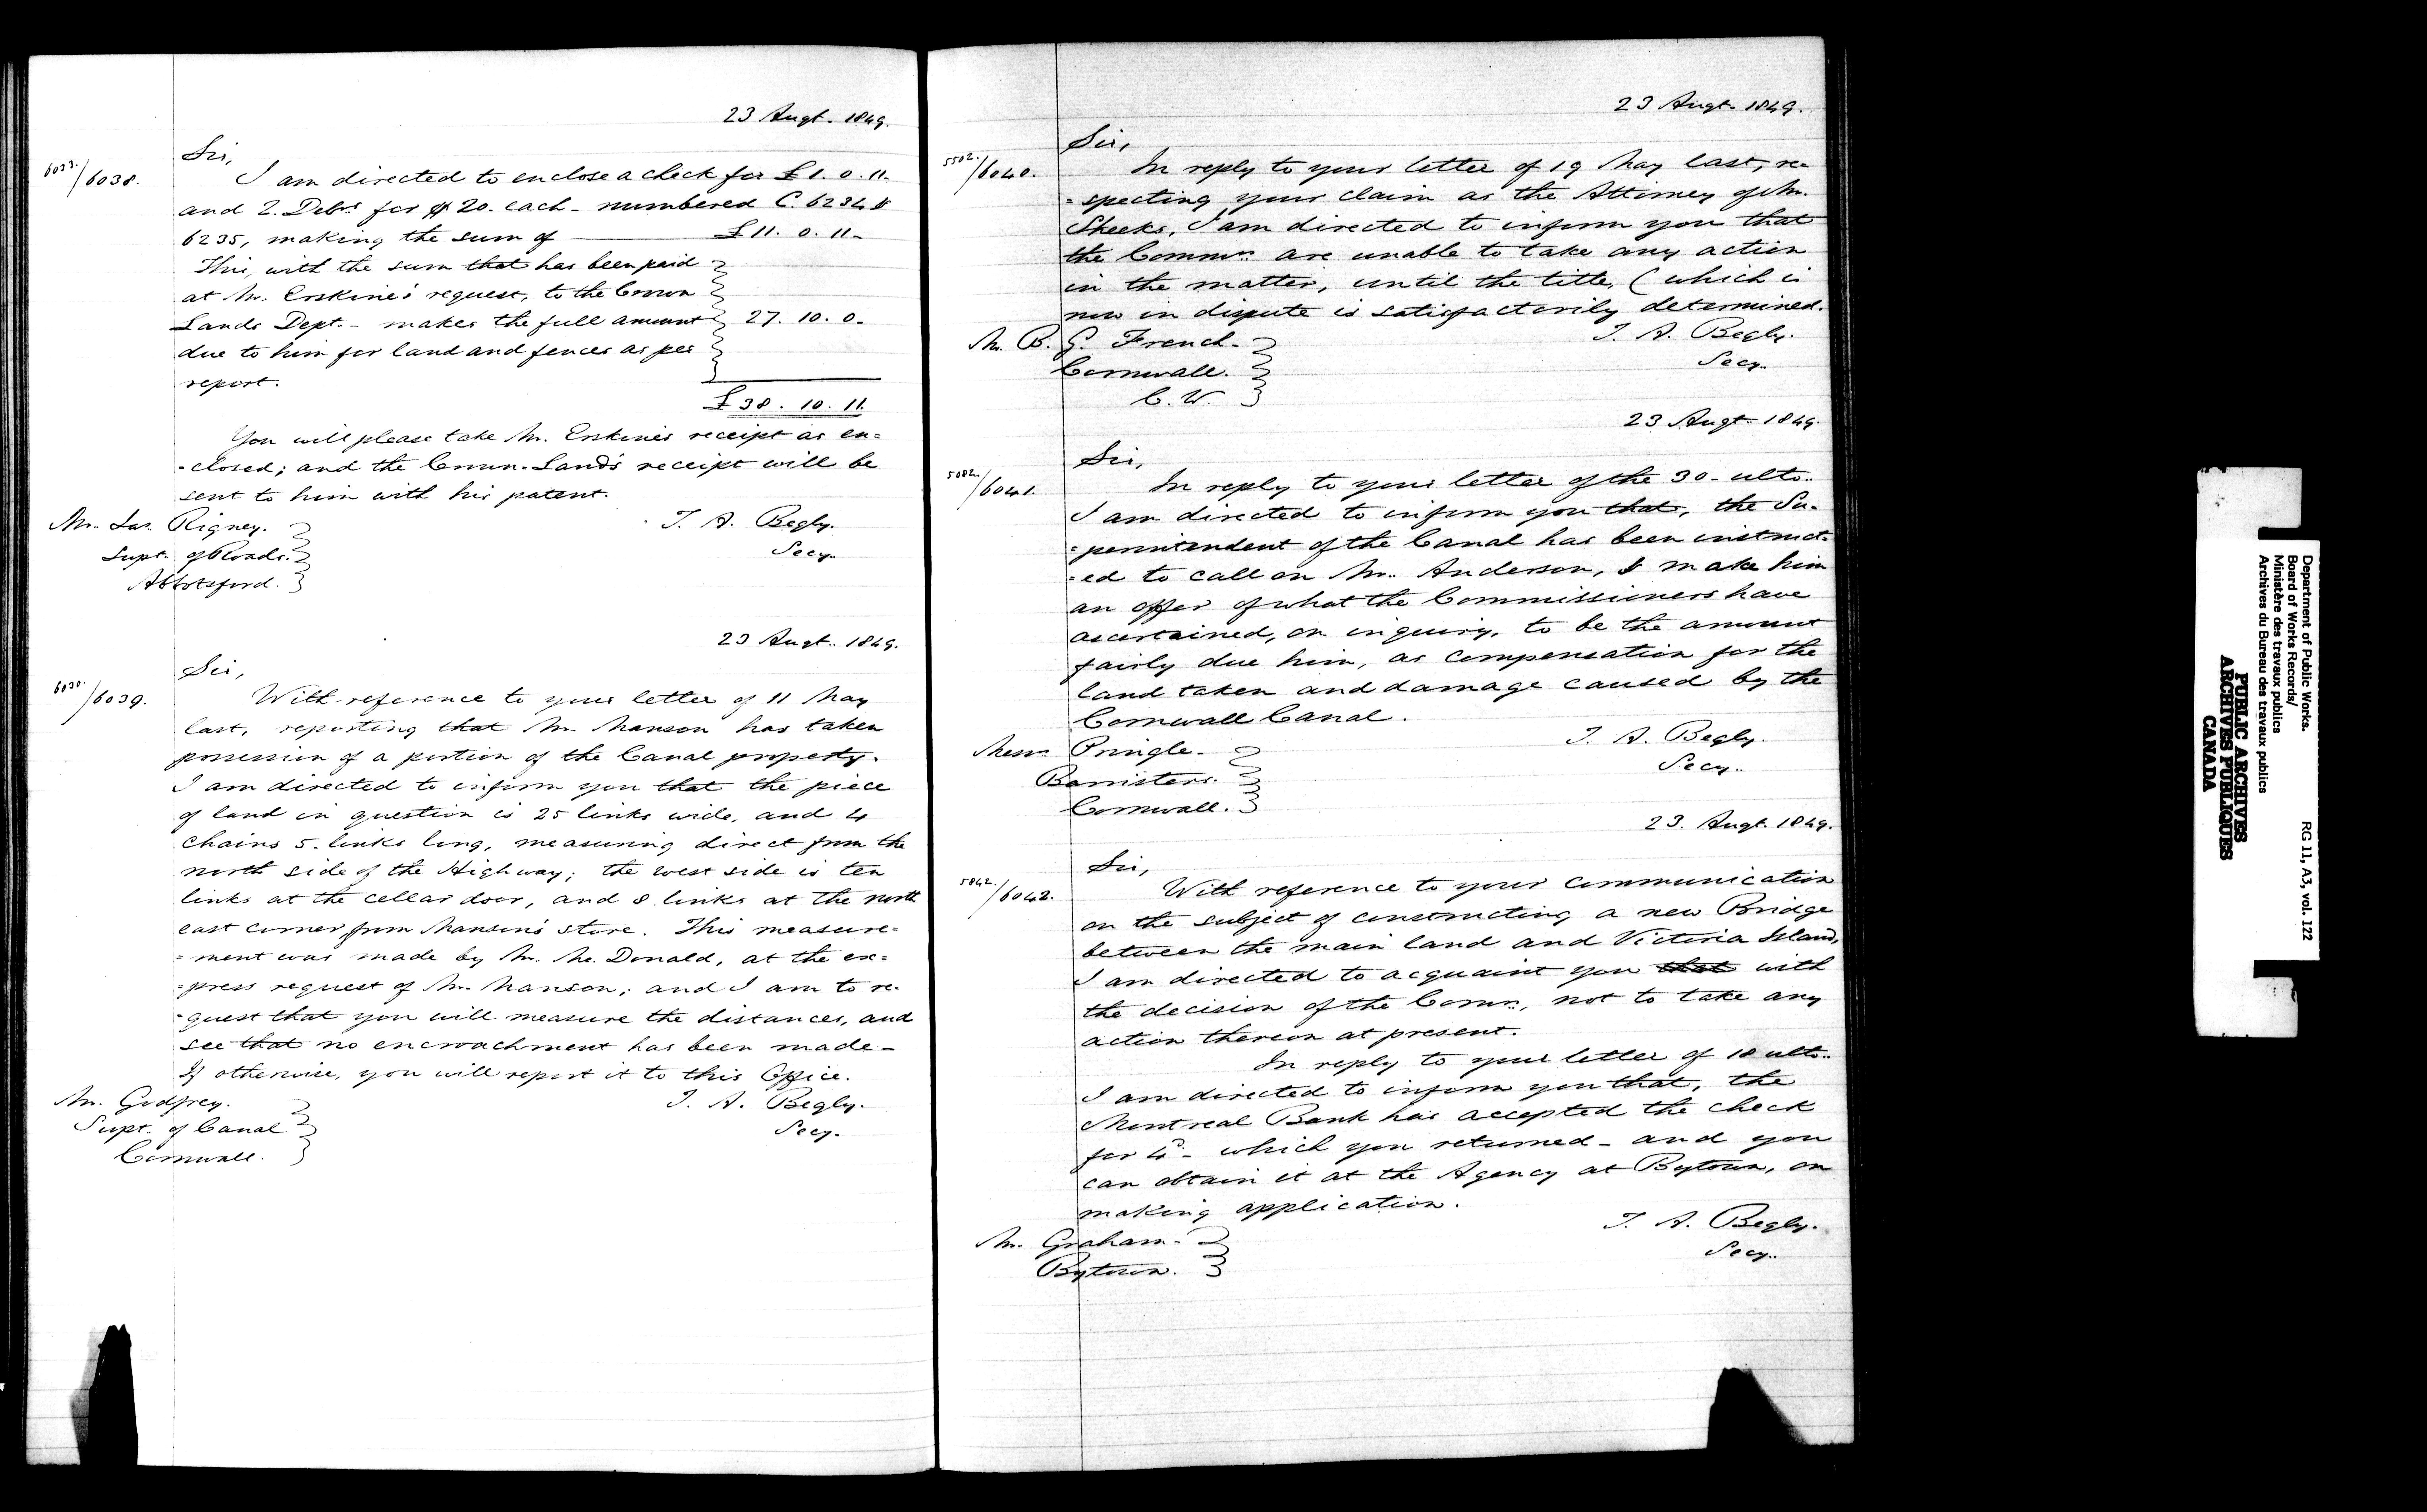 23 Augt. 1849.
Sir,
6033./6038.
I am directed to enclose a check for £1. 0. 11.
and 2. Debs for $20. each - numbered C. 6234 &
6235, making the sum of £11. 0. 11.
This, with the sum that has been paid
at Mr. Erskine's request, to the Crown
Lands Dept. - makes the full amount 27. 10. 0.
due to him for land and fences as per
report.
£38. 10. 11.
You will please take Mr. Erskine's receipt as en=
=closed; and the Crown Lands receipt will be
sent to him with his patent.
Mr. Jas. Rigney.
T. A. Begly.
Supt. of Roads.
Secy.
Abbotsford.
23 Augt. 1849.
Sir,
6030./6039.
With reference to your letter of 11 May
last, reporting that Mr. Manson has taken
possession of a portion of the Canal property.
I am directed to inform you that the piece
of land in question is 25 links wide, and 4
Chains 5. links long, measuring direct from the
north side of the Highway; the west side is ten
links at the cellar door, and 8 links at the north
east corner from Manson's store. This measure=
=ment was made by Mr. Mc. Donald, at the ex=
=press request of Mr. Manson; and I am to re-
=quest that you will measure the distances, and
see that no encroachment has been made -
If otherwise, you will report it to this Office.
Mr. Godfrey.
T. A. Begly.
Supt. of Canal
Secy.
Cornwall.
23 Augt. 1849.
Sir,
5502./6040.
In reply to your letter of 19 May last, re-
=specting your claim as the Attorney of Mr.
Sheeks, I am directed to inform you that
the Commrs. are unable to take any action
in the matter, until the title, (which is
now in dispute is satisfactorily determined.
Mr. B. G. French.
T. A. Begly.
Cornwall.
Secy.
C. W.
23 Augt. 1849.
Sir,
5082./6041.
In reply to your letter of the 30. ulto.
I am directed to inform you that, the Su-
=perintendent of the Canal has been instruct-
=ed to call on Mr. Anderson, & make him
an offer of what the Commissioners have
ascertained, on inquiry, to be the amount
fairly due him, as compensation for the
land taken and damage caused by the
Cornwall Canal.
Messrs. Pringle.
T. A. Begly.
Barristers.
Secy.
Cornwall.
23. Augt. 1849.
Sir,
5842./6042.
With reference to your communication
on the subject of constructing a new Bridge
between the main land and Victoria Island,
I am directed to acquaint you that with
the decision of the Comrs., not to take any
action thereon at present.
In reply to your letter of 18 ulto.
I am directed to inform you that, the
Montreal Bank has accepted the check
for which you returned - and you
can obtain it at the Agency at Bytown, on
making application.
Mr. Graham.
T. A. Begly.
Bytown.
Secy.
Department of Public Works.
Board of Works Records/
Ministère des travaux publics
Archives du Bureau des travaux publics
RG 11, A3, vol. 122
PUBLIC ARCHIVES
ARCHIVES PUBLIQUES
CANADA